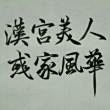 漢宮美人
或家風華